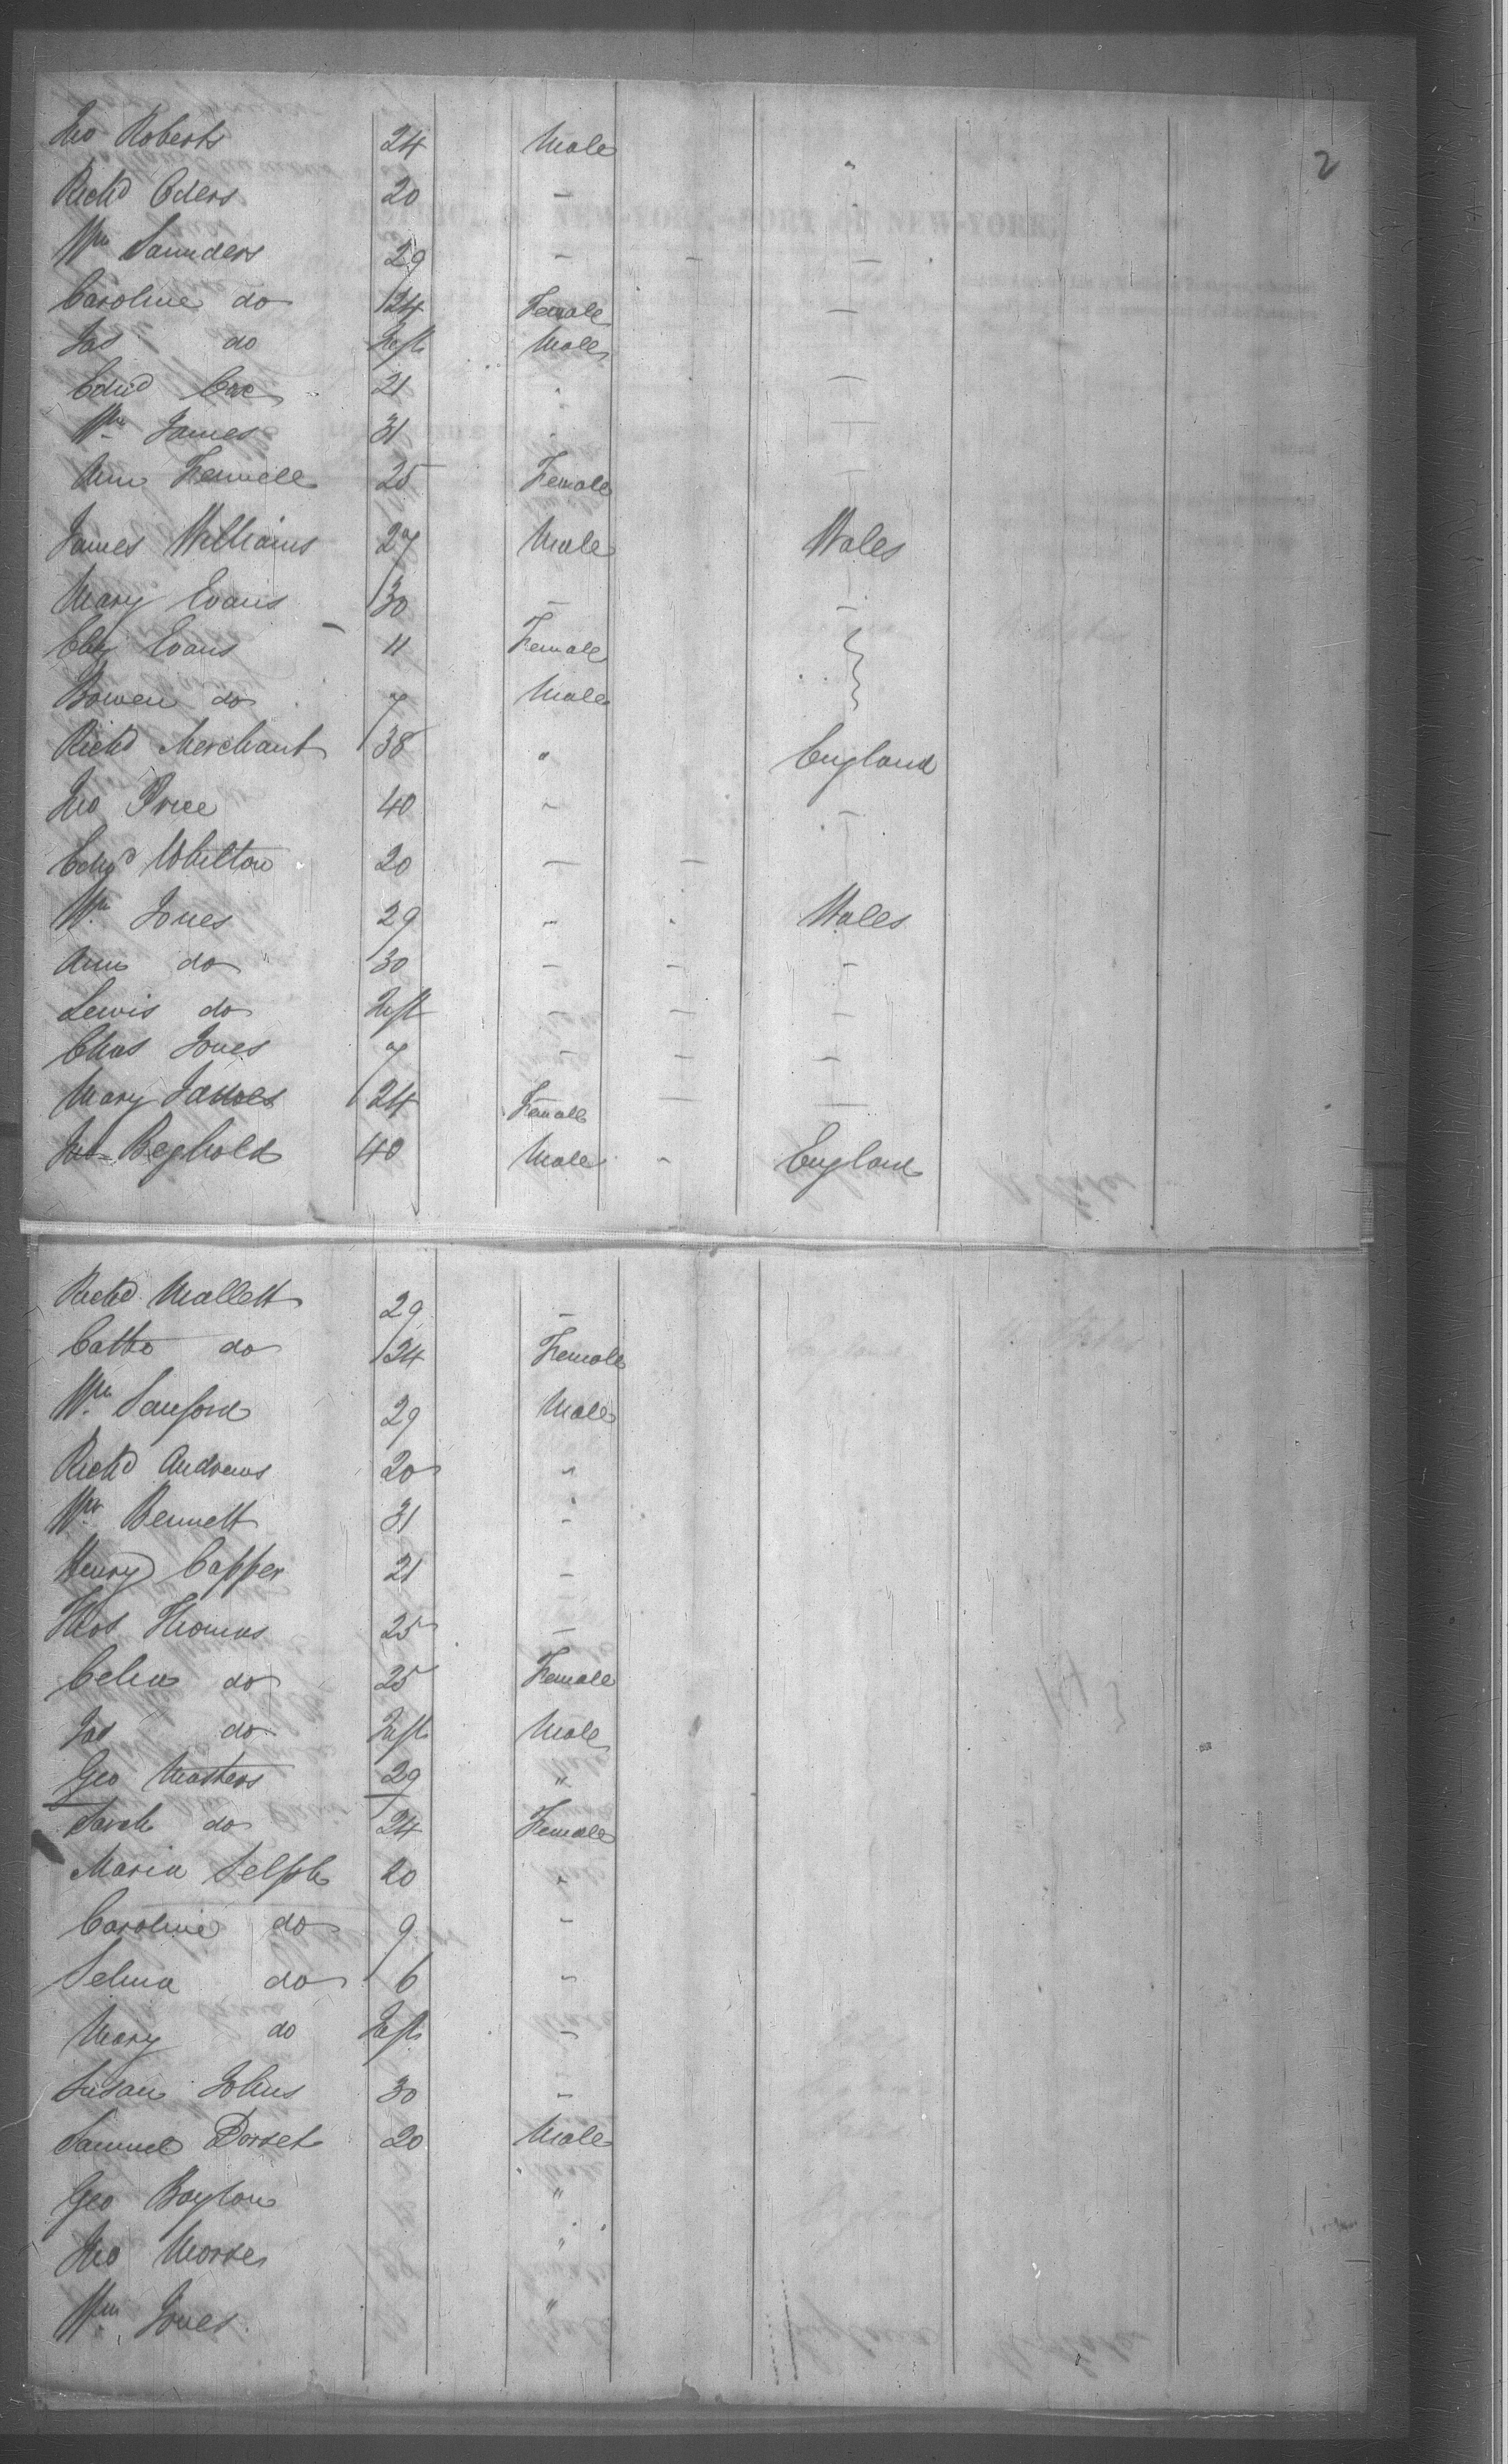 2
Jno Roberts 24 Male "
Richd Eders 20 —
Wm Saunders 29 — — —
Caroline do 24 Female —
Jas do Inft Male
Edwd Cox 21 " —
Wm James 31 " —
Ann Fennell 25 Female —
James Williams 27 Male Wales
Mary Evans 30 — —
Eliz Evans 11 Female
Bowen do 7 Male
Richd Merchant 38 " England
Jno Price 40 " —
Edwd Whilton 20 — — —
Wm Jones 29 " " Wales
Ann do 30 — — —
Lewis do Inft — — —
Chas Jones 7 — — —
Mary James 24 Female — —
Jno Reghold 40 Male " England
Richd Mallett 29 —
Cathe do 24 Female
Wm Sanford 29 Male
Richd Andrews 20 "
Wm Bennett 31 "
Henry Capper 21 —
Thos Thomas 25 —
Celia do 25 Female
Jas do Inft Male
Geo Masters 29 "
Sarah do 24 Female
Maria Selph 20 "
Caroline do 9 —
Selina do 6 "
Mary do Inft —
Susan Johns 30 —
Samuel Dorset 20 Male
Geo Boylon "
Jno Morse "
Wm Jones "